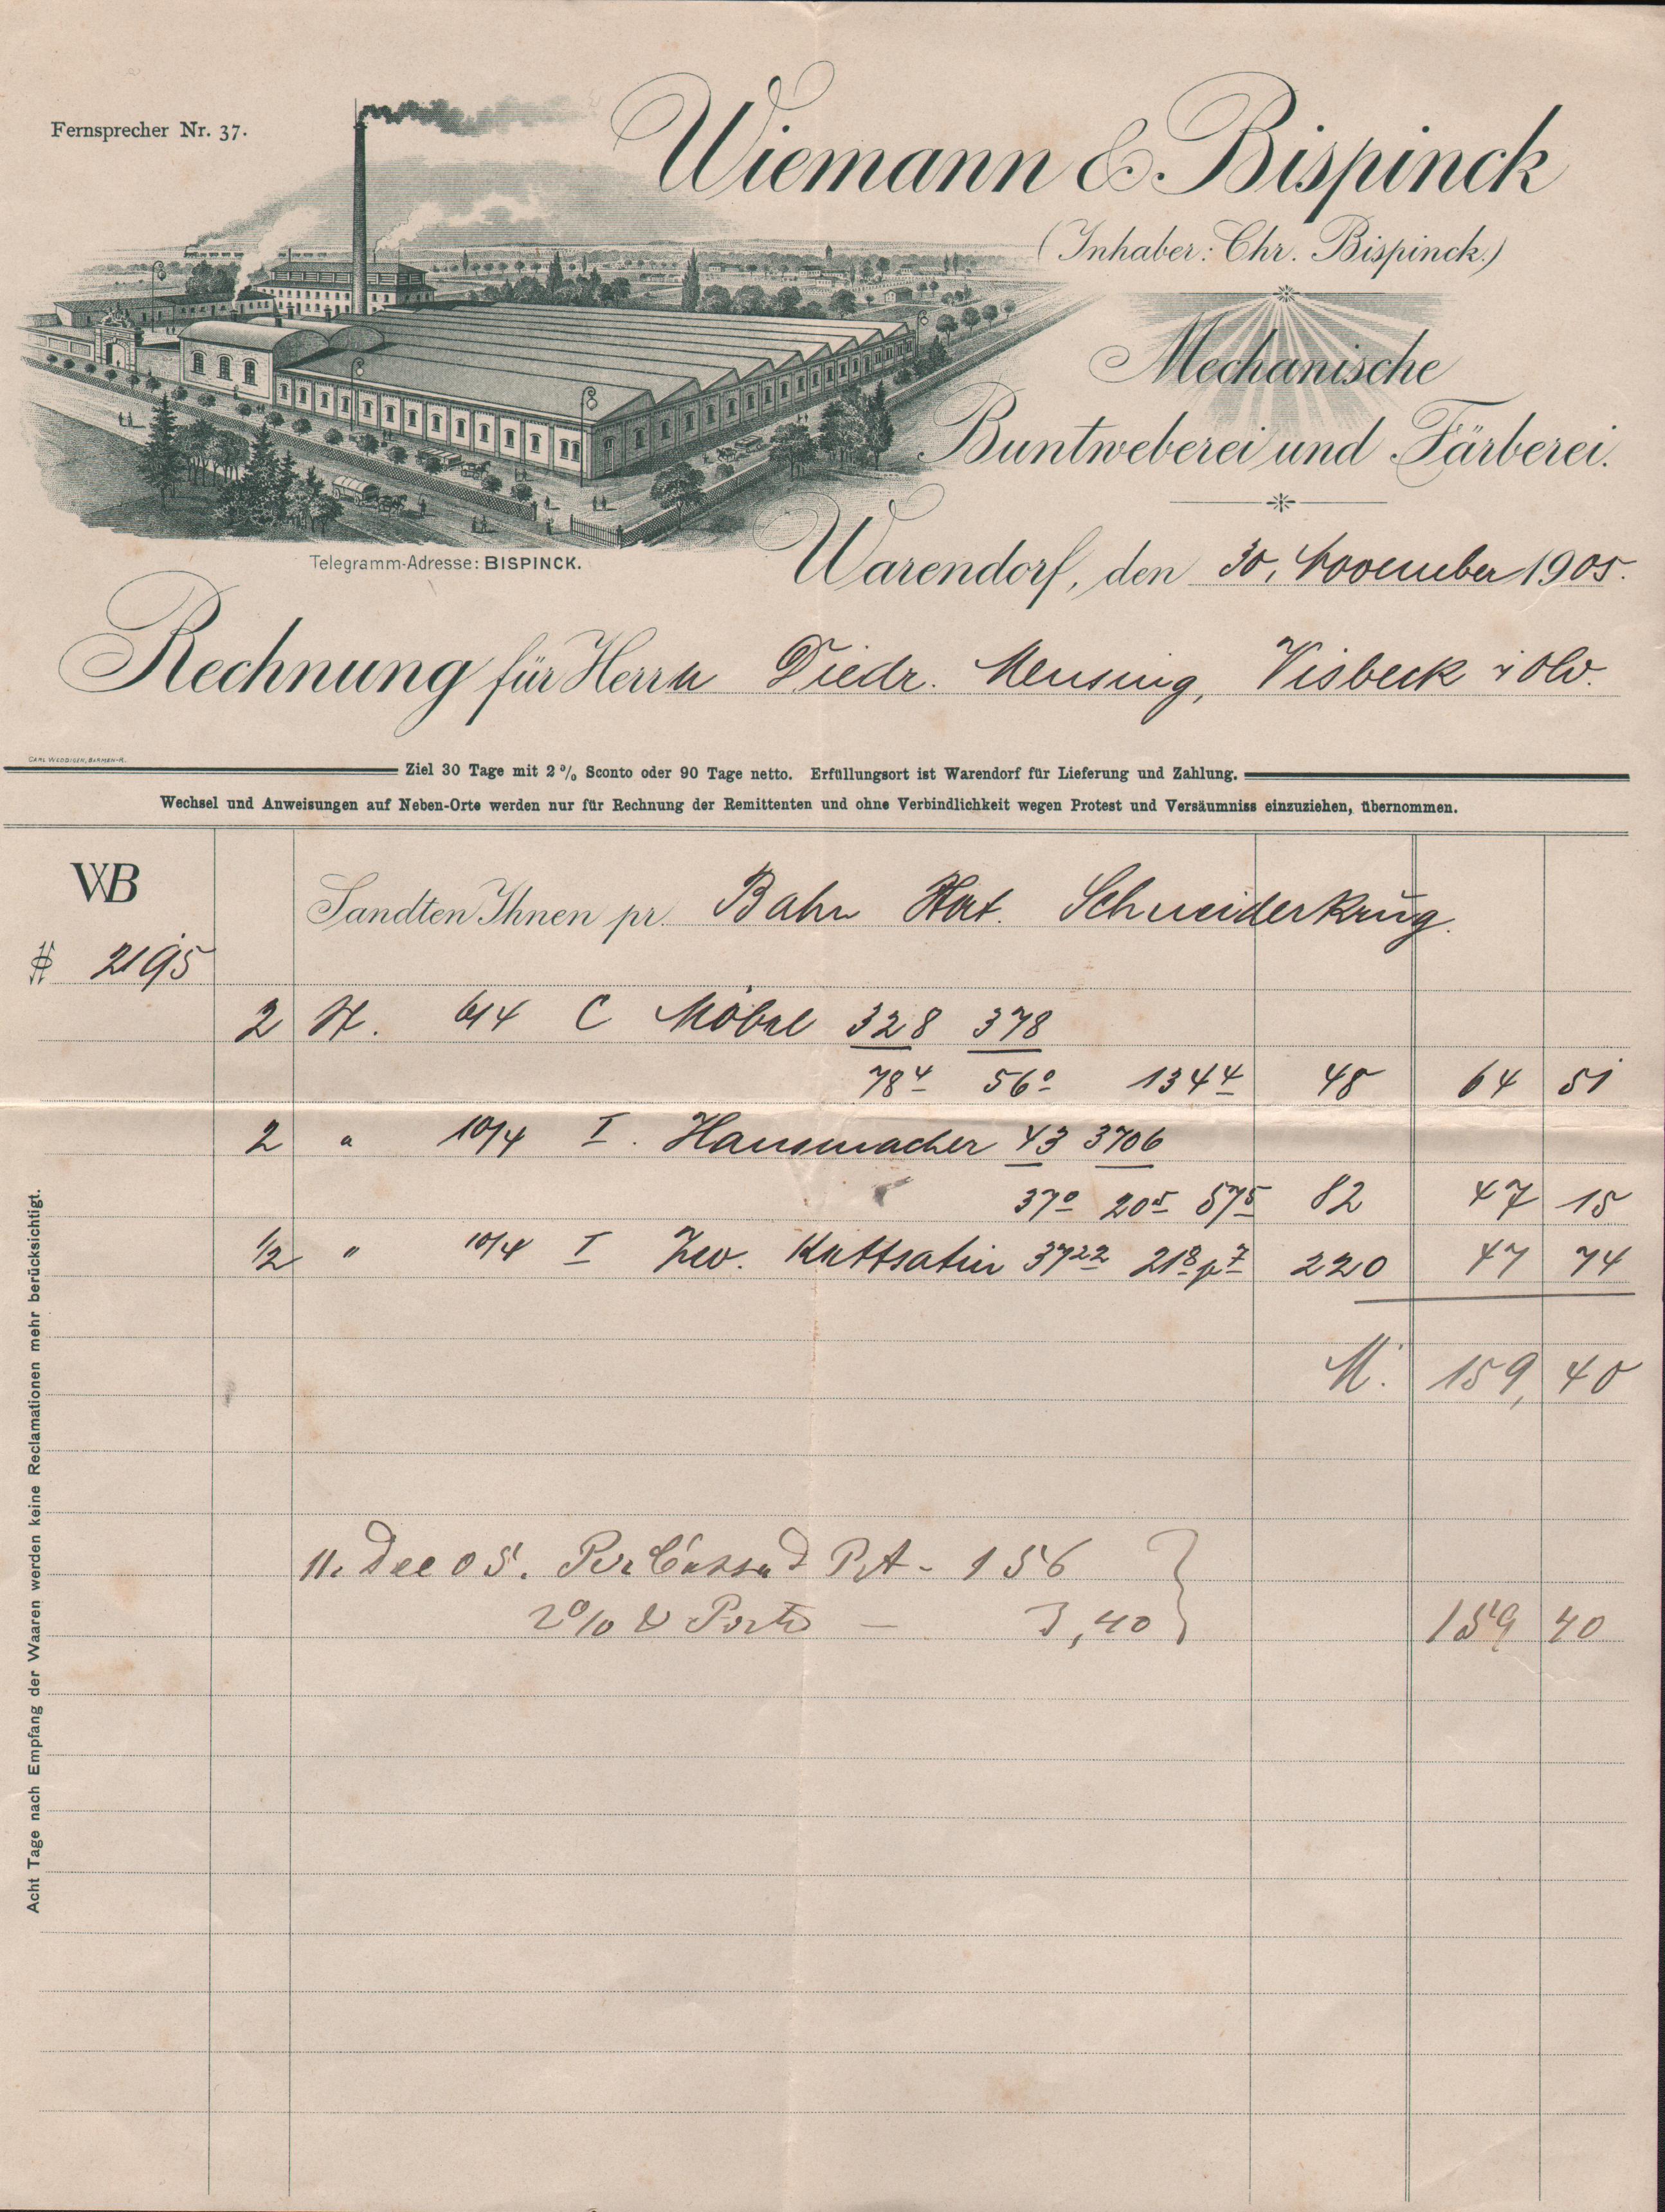 Fernsprecher Nr. 37.
Wiemann & Bispinck
(Inhaber: Chr. Bispinck.)
Mechanische
Buntweberei und Färberei.
Telegramm-Adresse: BISPINCK.
Warendorf, den 30. November 1905.
Rechnung für Herrn Diedr. Mensing, Visbeck i Old.
CARL WEDDIGEN, BARMEN-R.
Ziel 30 Tage mit 2% Sconto oder 90 Tage netto. Erfüllungsort ist Warendorf für Lieferung und Zahlung.
Wechsel und Anweisungen auf Neben-Orte werden nur für Rechnung der Remittenten und ohne Verbindlichkeit wegen Protest und Versäumniss einzuziehen, übernommen.
WB
Sandten Ihnen pr. Bahn Stat. Schneiderkrug.
# 2195
2 St. 6/4 C Möbel 328 378
78⁴ 56⁰ 134⁴ 48 64 51
2 " 10/4 I. Hausmacher 43 3706
37⁰ 20⁵ 57⁵ 82 47 15
1/2 " 10/4 I 3722 21⁸ 220 47 74
M. 159,40
11. Dec 05. Per Cassa 156
2% & Porto — 3,40 159 40
Acht Tage nach Empfang der Waaren werden keine Reclamationen mehr berücksichtigt.